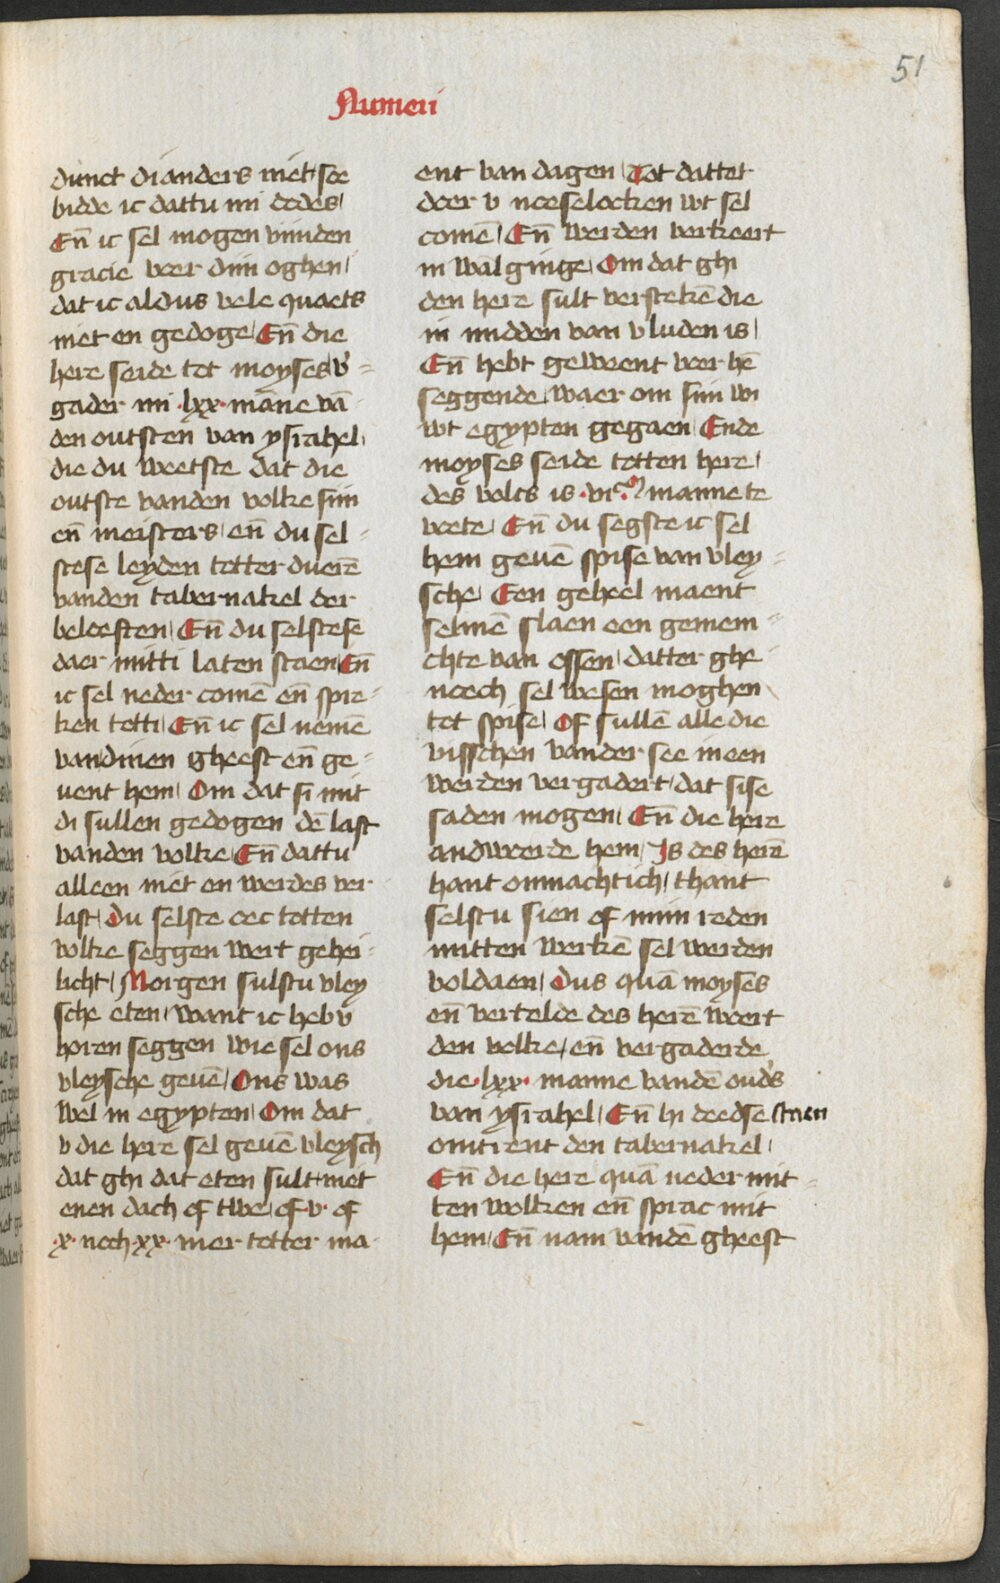 51
Numeri
dunct di anders niet / soe
bidde ic dattu mi dodes /
En̄ ic sel mogen vinden
gracie voer dijn oghen /
dat ic aldus vele quaets
niet en gedoge / En̄ die
here seide tot moyses / v̓ =
gader mi ·lxx· māne vā
den outsten van ysrahel /
die du weetste dat die
outste vanden volke sijn
en̄ meisters / en̄ du sel =
stese leyden totter duerē
vanden tabernakel der
beloesten / En̄ du selstese
daer mitti laten staen / En̄
ic sel neder comē en̄ spre =
ken totti / En̄ ic sel nemē
van dinen gheest en̄ ge =
uent hem / Om dat si mit
di sullen gedogen dē last
vanden volke / En̄ dattu
alleen niet en werdes ver
last / Du selste oec totten
volke seggen wert gehei =
licht / Morgen sulstu vley
sche eten / want ic heb v
horen seggen wie sel ons
vleysche geuē / Ons was
wel in egypten / Om dat
v die here sel geuē vleysch
dat ghi dat eten sult / niet
enen dach of twe / of ·v· of
·x· noch ·xx· mer totter ma =
ent van dagen / Tot dattet
doer v noeselocken wt sel
comē / En̄ werden verkeert
in walginge / Om dat ghi
den here sult verstekē die
in midden van v luden is /
En̄ hebt geweent voer hē
seggende / waer om sijn wi
wt egypten gegaen / Ende
moyses seide totten here /
des volcs is ·viᶜ· M manne te
voete / En̄ du segste ic sel
hem geuē spise van vley =
sche / Een geheel maent
selmē slaen een gemein =
chte van ossen / datter ghe =
noech sel wesen moghen
tot spise / Of sullē alle die
visschen vander see in een
werden vergadert / dat sise
saden mogen / En̄ die here
andwoerde hem / Is des herē
hant onmachtich / thant
selstu sien of mijn reden
mitten werkē sel werden
voldaen / Dus quā moyses
en̄ vertelde des herē woert
den volke / en̄ vergaderde
die ·lxx· manne vandē ouds
van ysrahel / En̄ hi deedse staen
omtrent den tabernakel /
En̄ die here quā neder mit =
ten wolken en̄ sprac mit
hem / En̄ nam vandē gheest